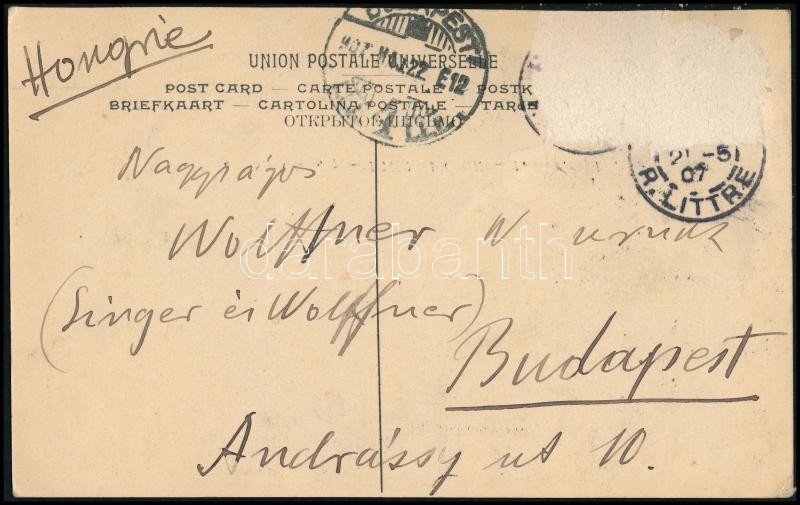 Hongrie
UNION POSTALE UNIVERSELLE
POST CARD — CARTE POSTALE — POSTK
BRIEFKAART — CARTOLINA POSTALE — TARJE
ОТКРЫТОЕ ПИСЬМО
BUDAPEST
907 MAJ 22 E12
21 -5
07
R. LITTRE
Nagyságos
Wolffner N úrnak
(Singer és Wolffner)
Budapest
Andrássy ut 10.
darabanth